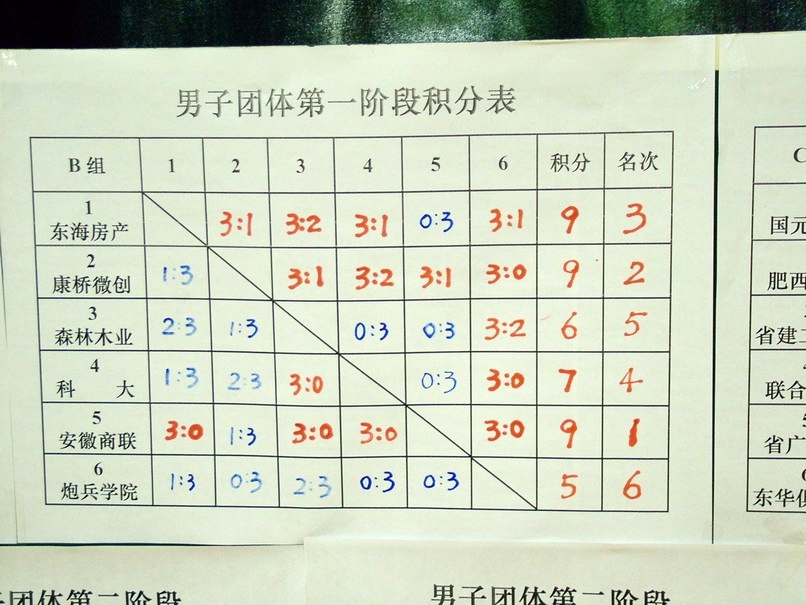 男子团体第一阶段积分表
B组 1 2 3 4 5 6 积分 名次
1 东海房产 3:1 3:2 3:1 0:3 3:1 9 3
2 康桥微创 1:3 3:1 3:2 3:1 3:0 9 2
3 森林木业 2:3 1:3 0:3 0:3 3:2 6 5
4 科 大 1:3 2:3 3:0 0:3 3:0 7 4
5 安徽商联 3:0 1:3 3:0 3:0 3:0 9 1
6 炮兵学院 1:3 0:3 2:3 0:3 0:3 5 6
C
国元
肥西
省建工
联合
省广
东华俱
子团体第二阶段
男子团体第二阶段